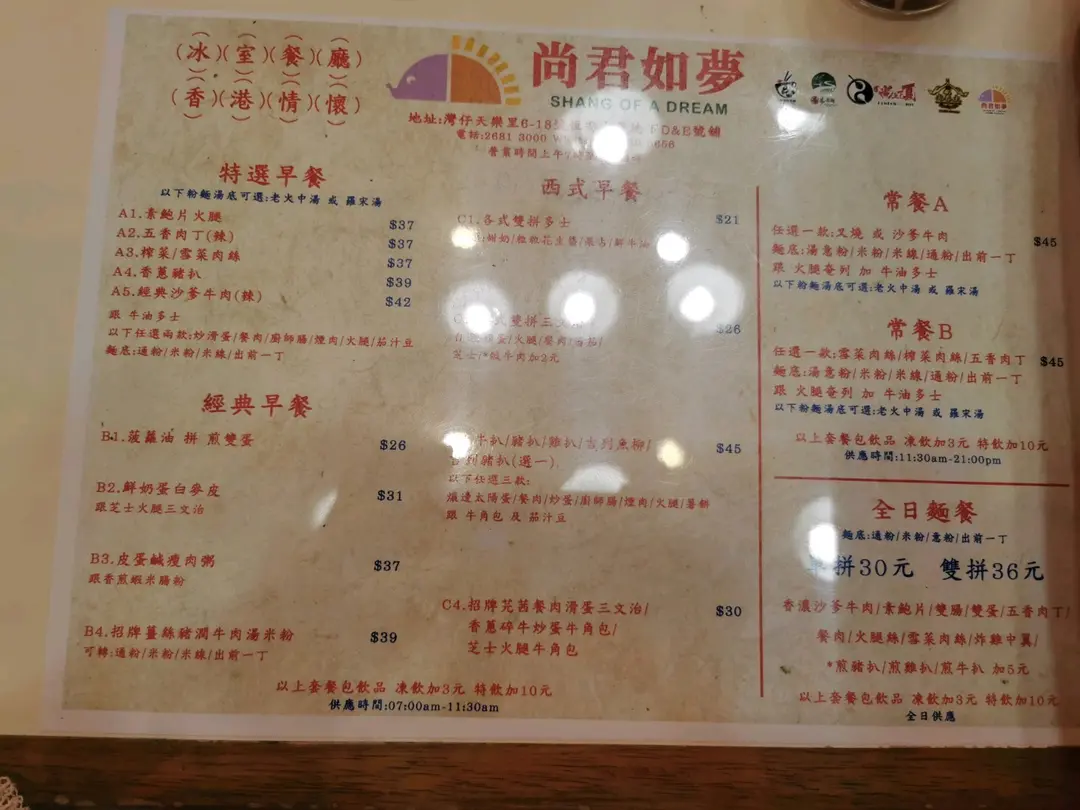 (冰)(室)(餐)(廳)
(香)(港)(情)(懷)
尚君如夢
SHANG OF A DREAM
地址:灣仔天樂里6-18號 D&E號舖
電話:2681 3000
營業時間上午
特選早餐
以下粉麵湯底可選:老火中湯 或 羅宋湯
A1.素鮑片火腿 $37
A2.五香肉丁(辣) $37
A3.榨菜/雪菜肉絲 $37
A4.香蔥豬扒 $39
A5.經典沙爹牛肉(辣) $42
跟 牛油多士
以下任選兩款:炒滑蛋/餐肉/廚師腸/煙肉/火腿/茄汁豆
麵底:通粉/米粉/米線/出前一丁
經典早餐
B1.菠蘿油 拼 煎雙蛋 $26
B2.鮮奶蛋白麥皮 $31
跟芝士火腿三文治
B3.皮蛋鹹瘦肉粥 $37
跟香煎蝦米腸粉
B4.招牌薑絲豬潤牛肉湯米粉 $39
可轉:通粉/米粉/米線/出前一丁
西式早餐
C1.各式雙拼多士 $21
甜奶/粒粒花生醬/果占/鮮牛油
雙拼三文治/ $26
蛋/火腿/餐肉/
芝士/*鹹牛肉加2元
牛扒/豬扒/雞扒/吉列魚柳/ $45
吉列豬扒(選一)
以下任選三款:
煎太陽蛋/餐肉/炒蛋/廚師腸/煙肉/火腿/薯餅
跟 牛角包 及 茄汁豆
C4.招牌芫茜餐肉滑蛋三文治/ $30
香蔥碎牛炒蛋牛角包/
芝士火腿牛角包
以上套餐包飲品 凍飲加3元 特飲加10元
供應時間:07:00am-11:30am
常餐A
任選一款:叉燒 或 沙爹牛肉 $45
麵底:湯意粉/米粉/米線/通粉/出前一丁
跟 火腿奄列 加 牛油多士
以下粉麵湯底可選:老火中湯 或 羅宋湯
常餐B
任選一款:雪菜肉絲/榨菜肉絲/五香肉丁 $45
麵底:湯意粉/米粉/米線/通粉/出前一丁
跟 火腿奄列 加 牛油多士
以下粉麵湯底可選:老火中湯 或 羅宋湯
以上套餐包飲品 凍飲加3元 特飲加10元
供應時間:11:30am-21:00pm
全日麵餐
麵底:通粉/米粉/意粉/出前一丁
單拼30元 雙拼36元
香濃沙爹牛肉/素鮑片/雙腸/雙蛋/五香肉丁/
餐肉/火腿絲/雪菜肉絲/炸雞中翼/
*煎豬扒/煎雞扒/煎牛扒 加5元
以上套餐包飲品 凍飲加3元 特飲加10元
全日供應